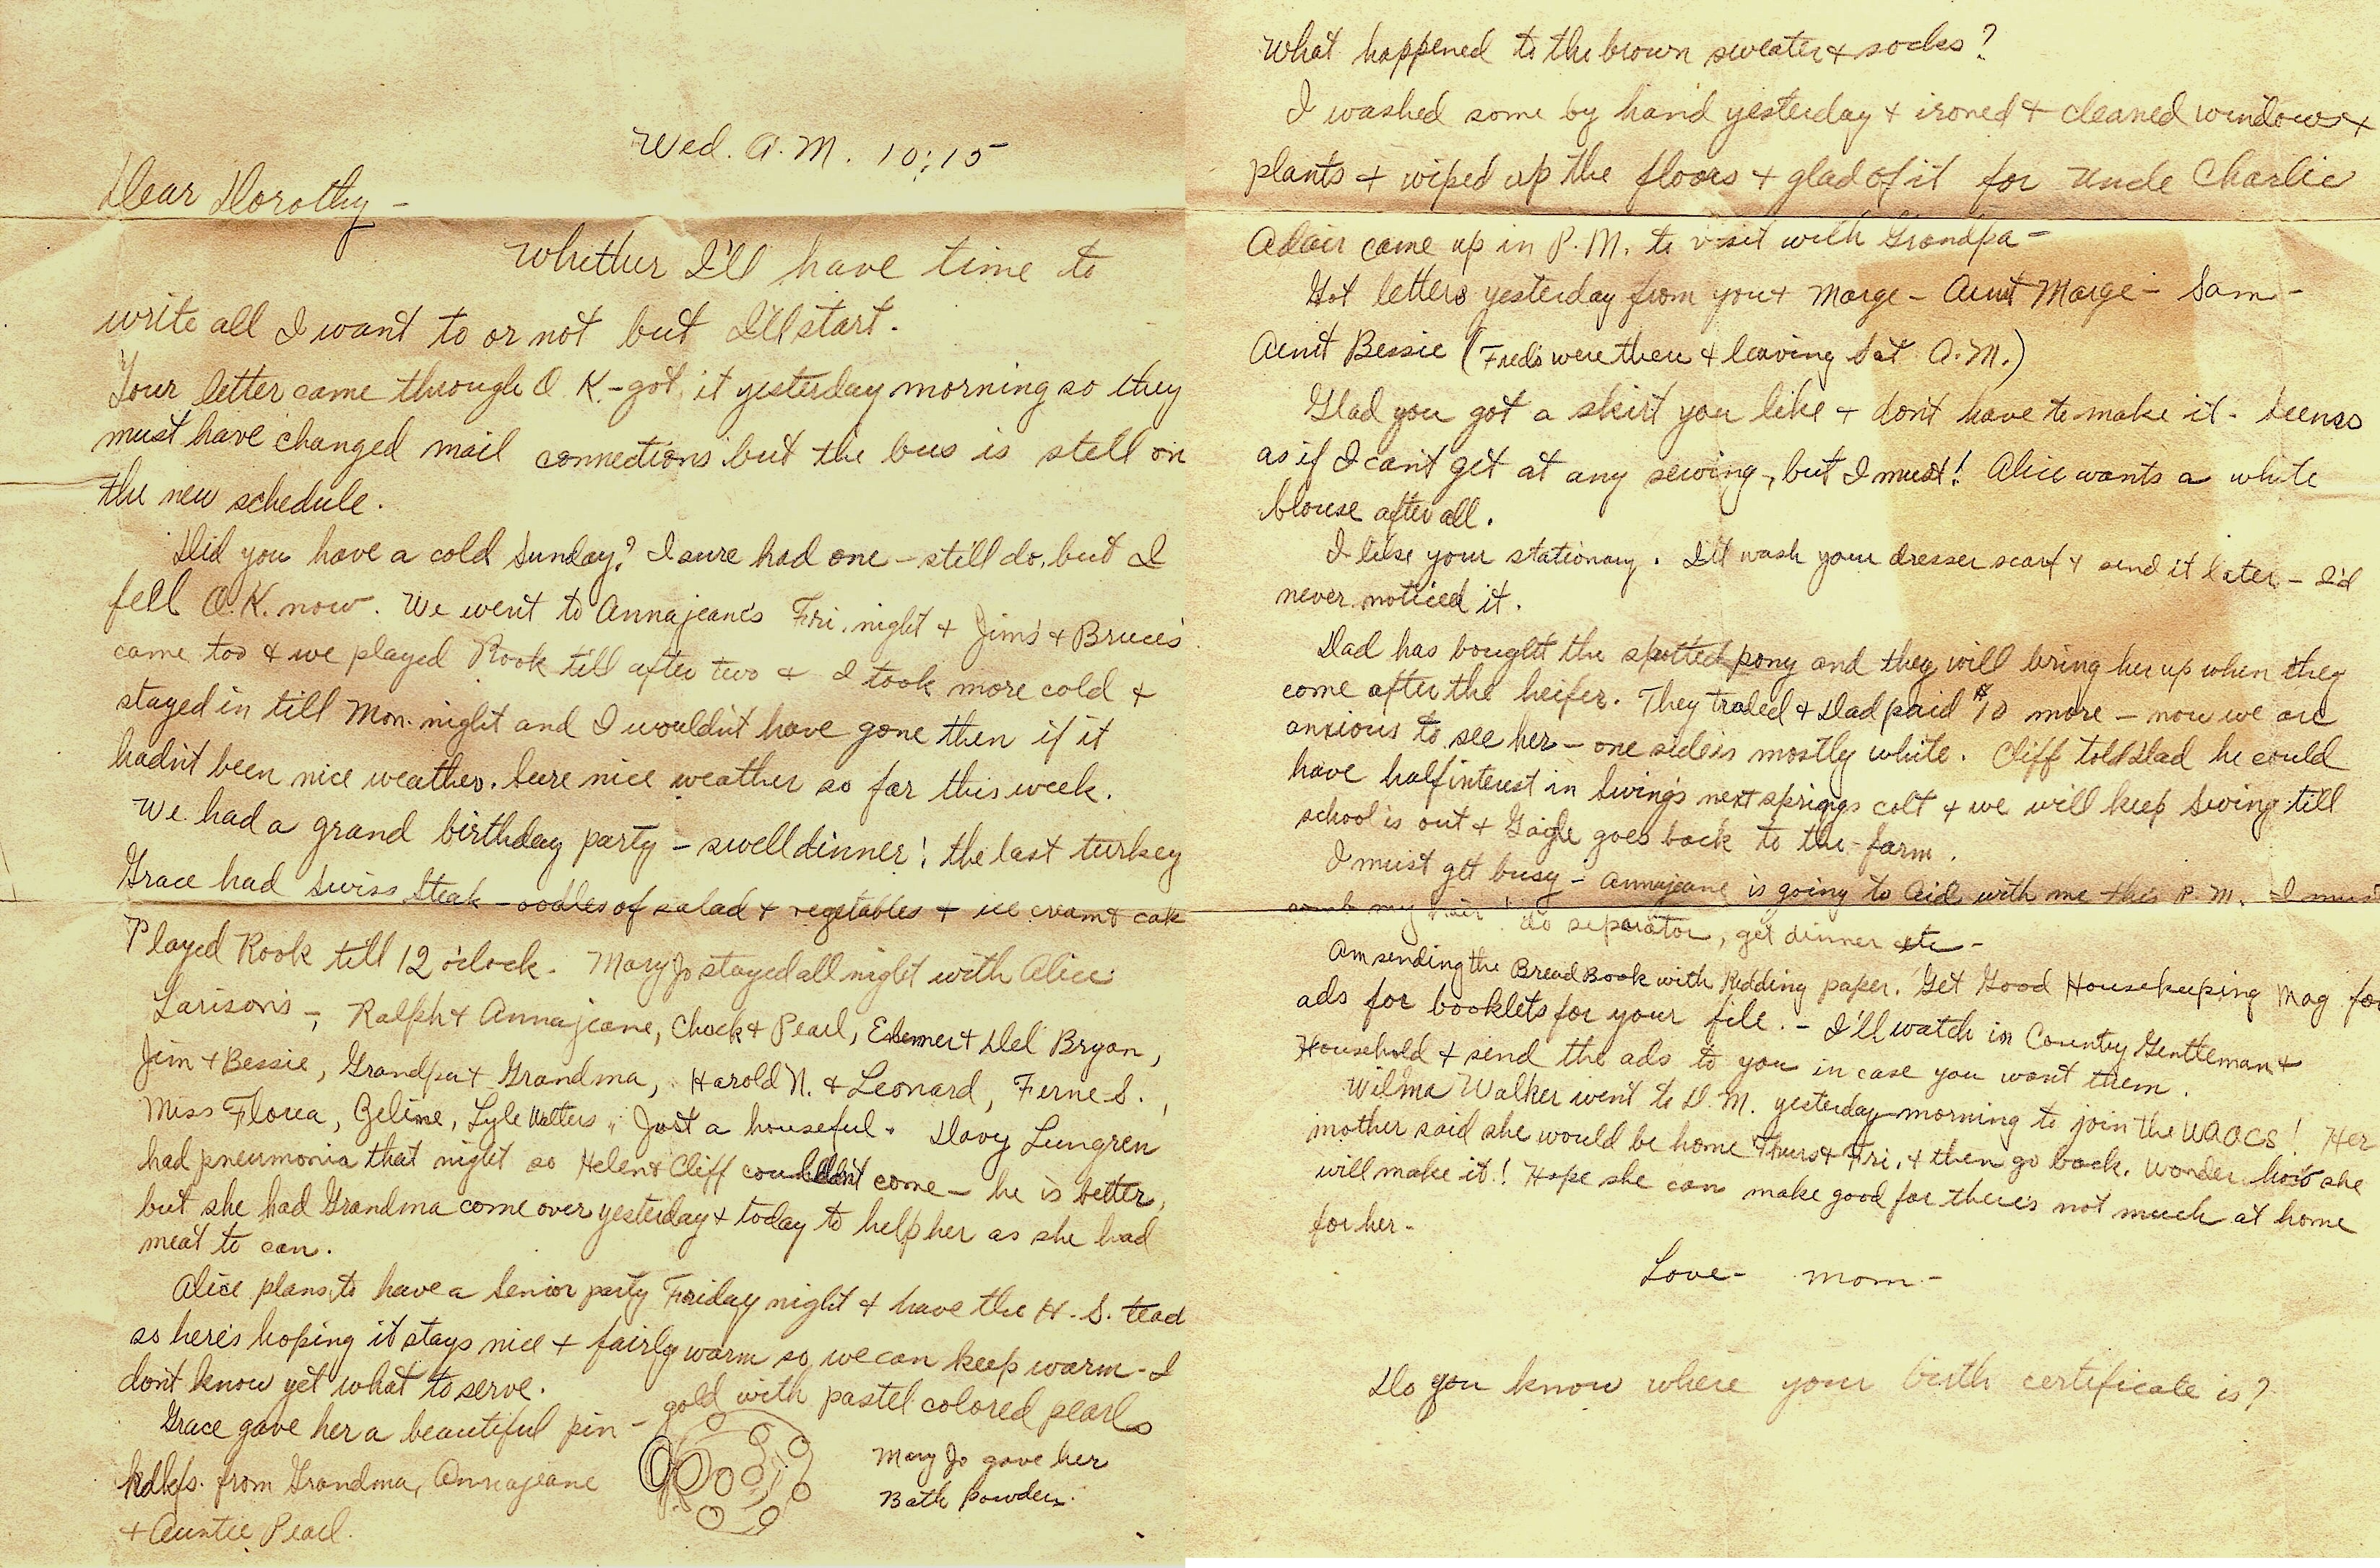 Wed. A.M. 10:15
Dear Dorothy -
Whither I'll have time to
write all I want to or not but I'll start.
Your letter came through O.K. - got it yesterday morning so they
must have changed mail connections but the bus is still on
the new schedule.
Did you have a cold Sunday? I sure had one - still do, but I
fell O.K. now. We went to Annajeane's Fri. night + Jim's + Bruce's
came too + we played Rook till after two + I took more cold +
stayed in till Mon. night and I wouldn't have gone then if it
hadn't been nice weather. Sure nice weather so far this week.
We had a grand birthday party - swell dinner! the last turkey
Grace had Swiss Steak - oodles of salad + vegetables + ice cream + cake
Played Rook till 12 o'clock. Mary Jo stayed all night with Alice.
Larison's -, Ralph + Annajeane, Chuck + Pearl, + Del Bryan,
Jim + Bessie, Grandpa + Grandma, Harold N. + Leonard, Ferne S.,
Miss Florea, Lyle Walters. Just a houseful. Davy Lungren
had pneumonia that night so Helen + Cliff couldn't come - he is better,
but she had Grandma come over yesterday + today to help her as she had
meat to can.
Alice plans to have a Senior party Friday night + have the H.S. teach
so here's hoping it stays nice + fairly warm so we can keep warm - I
don't know yet what to serve.
Grace gave her a beautiful pin - gold with pastel colored pearls
Hdkfs. from Grandma, Annajeane
+ Auntie Pearl.
Mary Jo gave her
Bath Powder.
What happened to the brown sweater + socks?
I washed some by hand yesterday + ironed + cleaned windows +
plants + wiped up the floors + glad of it for Uncle Charlie
Adair came up in P.M. to visit with Grandpa -
Got letters yesterday from you + Marge - Aunt Marge - Sam -
Aunt Bessie (Fred's were there + leaving Sat A.M.)
Glad you got a skirt you like + don't have to make it - Seems
as if I can't get at any sewing, but I must! Alice wants a white
blouse after all.
I like your stationary. I'll wash your dresser scarf + send it later - I'd
never noticed it.
Dad has bought the spotted pony and they will bring her up when they
come after the heifer. They traded + Dad paid $10 more - now we are
anxious to see her - one side is mostly white. Cliff told Dad he could
have half interest in Swing's next springs colt + we will keep Swing till
school is out + goes back to the farm.
I must get busy - Annajeane is going to Aid with me this P.M. I must
comb my hair! do separator, get dinner etc -
Am sending the Bread Book with Redding paper. Get Good Housekeeping Mag for
ads for booklets for your file. - I'll watch in Country Gentleman +
Household + send the ads to you in case you want them.
Wilma Walker went to D.M. yesterday morning to join the WAACS! Her
mother said she would be home Thurs + Fri. + then go back. Wonder how she
will make it! Hope she can make good for there's not much at home
for her -
Love - Mom -
Do you know where your birth certificate is?